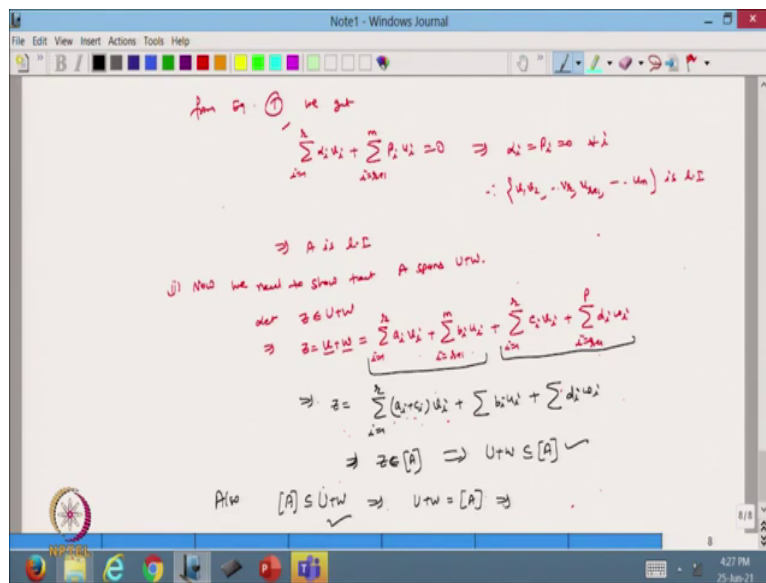 Note1 - Windows Journal
File Edit View Insert Actions Tools Help
B I
from Eq. ① we get
∑_{i=1}^{r} α_i v_i + ∑_{i=r+1}^{m} β_i u_i = 0 ⇒ α_i = β_i = 0 ∀ i
∵ {v_1, v_2, -- v_r, u_{r+1}, -- u_m} is L.I
⇒ A is L.I
ii) Now we need to show that A spans U+W.
Let z ∈ U+W
⇒ z = u + w = ∑_{i=1}^{r} a_i v_i + ∑_{i=r+1}^{m} b_i u_i + ∑_{i=1}^{r} c_i v_i + ∑_{i=r+1}^{p} d_i w_i
⇒ z = ∑_{i=1}^{r} (a_i + c_i) v_i + ∑ b_i u_i + ∑ d_i w_i
⇒ z ∈ [A] ⇒ U+W ⊆ [A] ✓
Also [A] ⊆ U+W ⇒ U+W = [A] ⇒
✓
8/8
8
NPTEL
4:27 PM
25-Jun-21